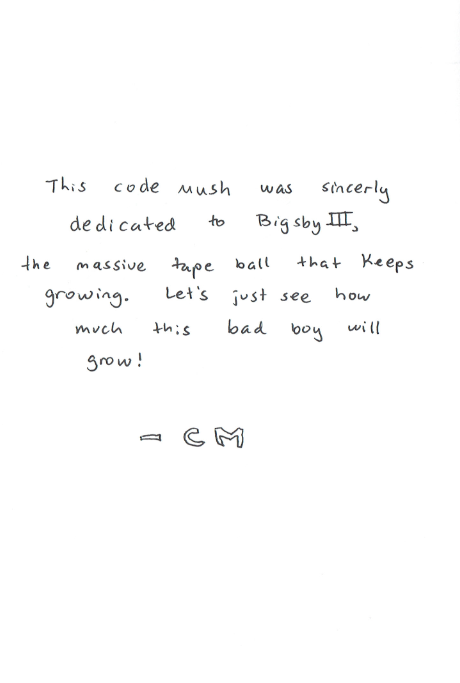 This code mush was sincerly
dedicated to Bigsby III,
the massive tape ball that keeps
growing. Let's just see how
much this bad boy will
grow!
- CM